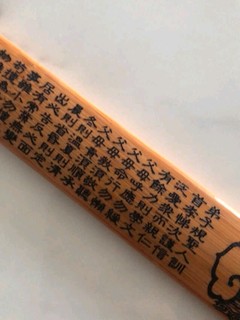 弟子規聖人訓
首孝悌次謹信
愛眾而親仁
有餘力則學文
父母呼應勿緩
父母命行勿懶
父母教須敬聽
父母責須順承
冬則溫夏則
晨則省昏則定
出必告反必面
居有常業無變